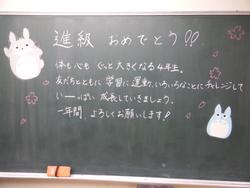 進級 おめでとう!!
体も心も ぐっと大きくなる4年生。
友だちとともに 学習に運動、いろいろなことにチャレンジして
いーっぱい 成長していきましょう。
一年間、よろしくお願いします!